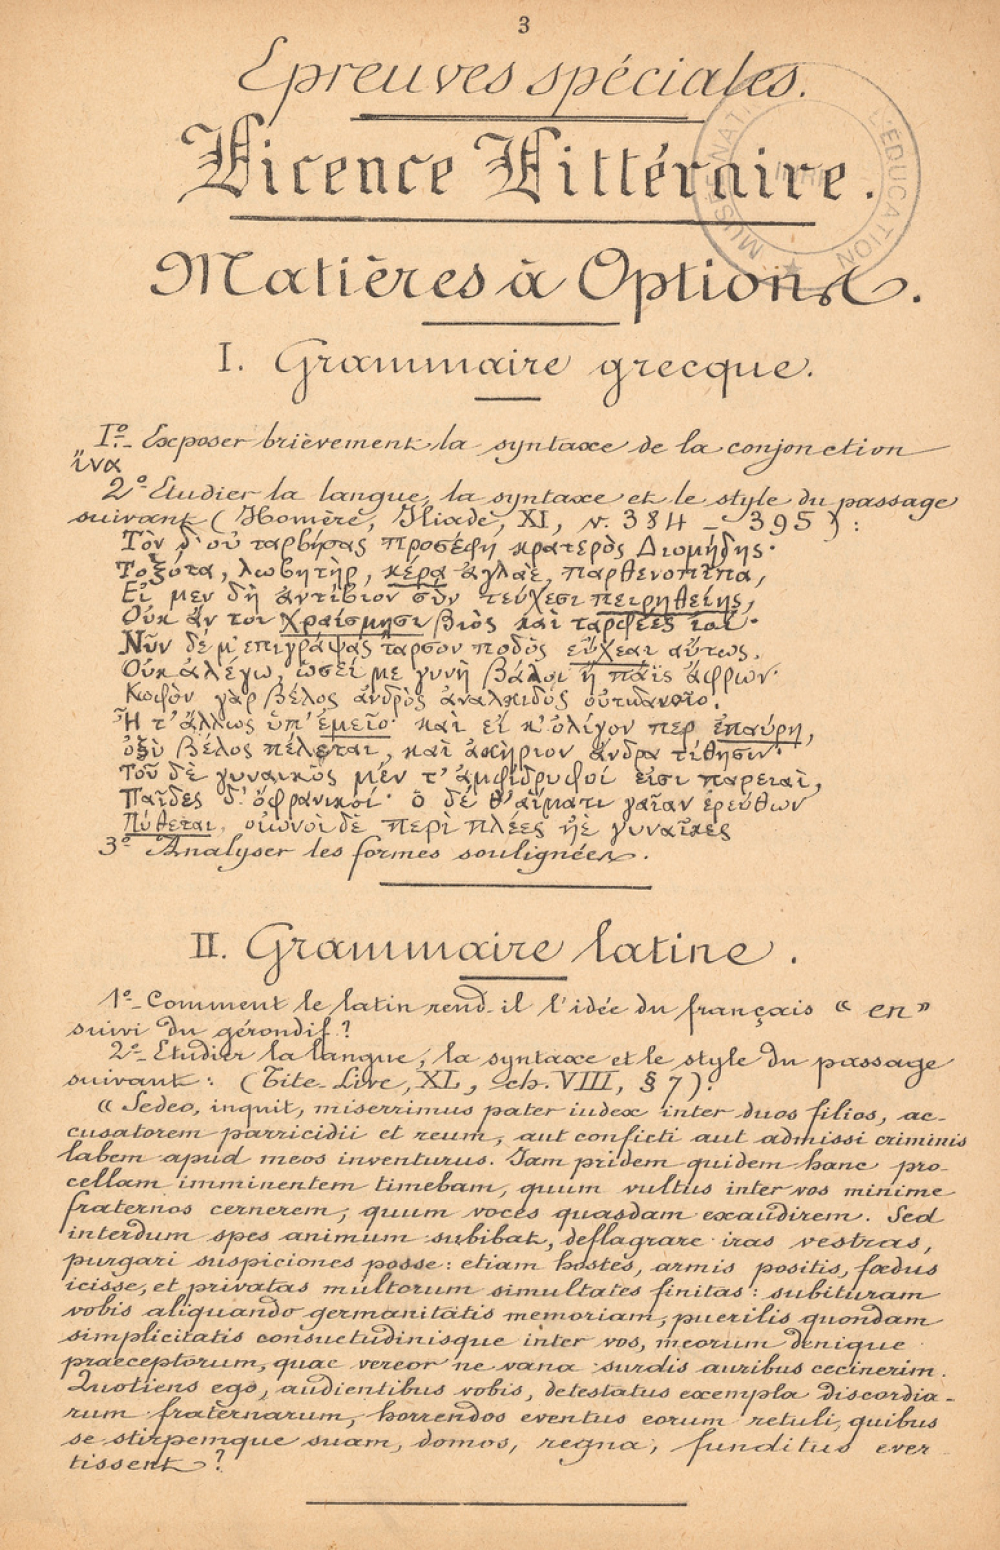 3
Epreuves spéciales.
Licence Littéraire.
Matières à Options.
I. Grammaire grecque.
1º- Exposer brièvement la syntaxe de la conjonction
ἵνα
2º- Etudier la langue, la syntaxe et le style du passage
suivant (Homère, Iliade, XI, v. 384 - 395) :
Τὸν δ' οὐ ταρβήσας προσέφη κρατερὸς Διομήδης·
Τοξότα, λωβητὴρ, κέρᾳ ἀγλαὲ, παρθενοπῖπα,
Εἰ μεν δὴ ἀντίβιον σὺν τεύχεσι πειρηθείης,
Οὐκ ἄν τοι χραίσμησι βιὸς καὶ ταρφέες ἰοί·
Νῦν δέ μ' επιγράψας ταρσον ποδὸς εὔχεαι αὔτως.
Οὐκ ἀλέγω, ὡσεί με γυνὴ βάλοι ἢ πάϊς ἄφρων·
Κωφὸν γὰρ βέλος ἀνδρὸς ἀναλκιδὸς οὐτιδανοῖο.
Ἦ τ' ἄλλως ὑπ' ἐμεῖο· καὶ εἴ κ' ὀλίγον περ ἐπαύρῃ,
ὀξὺ βέλος πέλεται, καὶ ἀκήριον ἄνδρα τίθησιν·
Τοῦ δὲ γυναικὸς μέν τ' ἀμφίδρυφοί εἰσι παρειαὶ,
Παῖδες δ' ὀφρανικοί· ὁ δέ θ' αἵματι γαῖαν ἐρεύθων
Πύθεται, οἰωνοὶ δὲ περὶ πλέες ἠὲ γυναῖκες
3º Analyser les formes soulignées.
II. Grammaire latine.
1º- Comment le latin rend-il l'idée du français « en »
suivi du gérondif ?
2º- Etudier la langue, la syntaxe et le style du passage
suivant : (Tite-Live, XL, ch. VIII, § 7).
« Sedeo, inquit, miserrimus pater iudex inter duos filios, ac-
cusatorem parricidii et reum, aut conficti aut admissi criminis
labem apud meos inventurus. Iam pridem quidem hanc pro-
cellam imminentem timebam, quum vultus inter vos minime
fraternos cernerem, quum voces quasdam exaudirem. Sed
interdum spes animum subibat, deflagrare iras vestras,
purgari suspiciones posse : etiam hostes, armis positis, fœdus
icisse, et privatas multorum simultates finitas : subituram
vobis aliquando germanitatis memoriam, puerilis quondam
simplicitatis consuetudinisque inter vos, meorum denique
praeceptorum, quae vereor ne vana surdis auribus cecinerim.
Quotiens ego, audientibus vobis, detestatus exempla discordia-
rum fraternarum, horrendos eventus eorum retuli, quibus
se stirpemque suam, domos, regna, funditus ever-
tissent ?